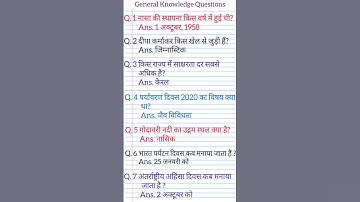 General Knowledge Questions
Q. 1 नासा की स्थापना किस वर्ष में हुई थी?
Ans. 1 अक्टूबर, 1958
Q. 2 दीपा कर्माकर किस खेल से जुड़ी हैं?
Ans. जिम्नास्टिक
Q. 3 किस राज्य में साक्षरता दर सबसे
अधिक है?
Ans. केरल
Q. 4 पर्यावरण दिवस 2020 का विषय क्या
था?
Ans. जैव विविधता
Q. 5 गोदावरी नदी का उद्गम स्थल क्या है?
Ans. नासिक
Q. 6 भारत पर्यटन दिवस कब मनाया जाता हैं ?
Ans. 25 जनवरी को
Q. 7 अंतर्राष्ट्रीय अहिंसा दिवस कब मनाया
जाता है ?
Ans. 2 अक्टूबर को